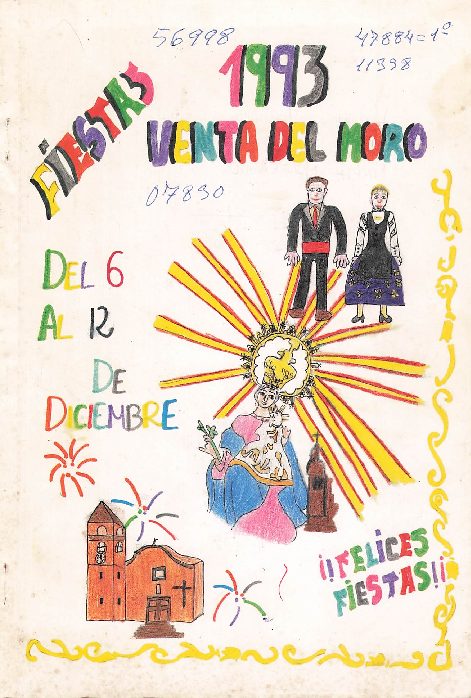 56998
47884=1º
11338
FIESTAS
1993
VENTA DEL MORO
07830
DEL 6
AL 12
DE
DICIEMBRE
¡¡FELICES
FIESTAS!!